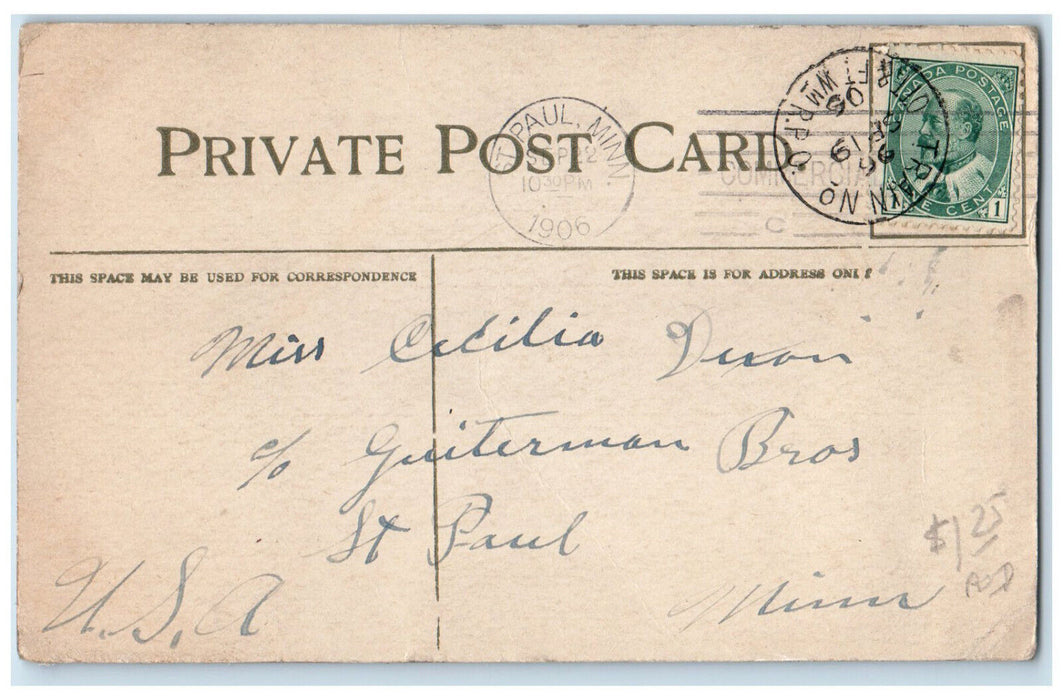 PRIVATE POST CARD
ST. PAUL, MINN.
SEP 22
10 30 PM
1906
COMMERCIAL
C
TRAIN NO
96
SE 19
06
FT WM R.P.O.
CANADA POSTAGE
ONE CENT
1
THIS SPACE MAY BE USED FOR CORRESPONDENCE
THIS SPACE IS FOR ADDRESS ONLY
Miss Cecilia Dixon
c/o Guiterman Bros
St Paul
Minn
U.S.A
$1 25